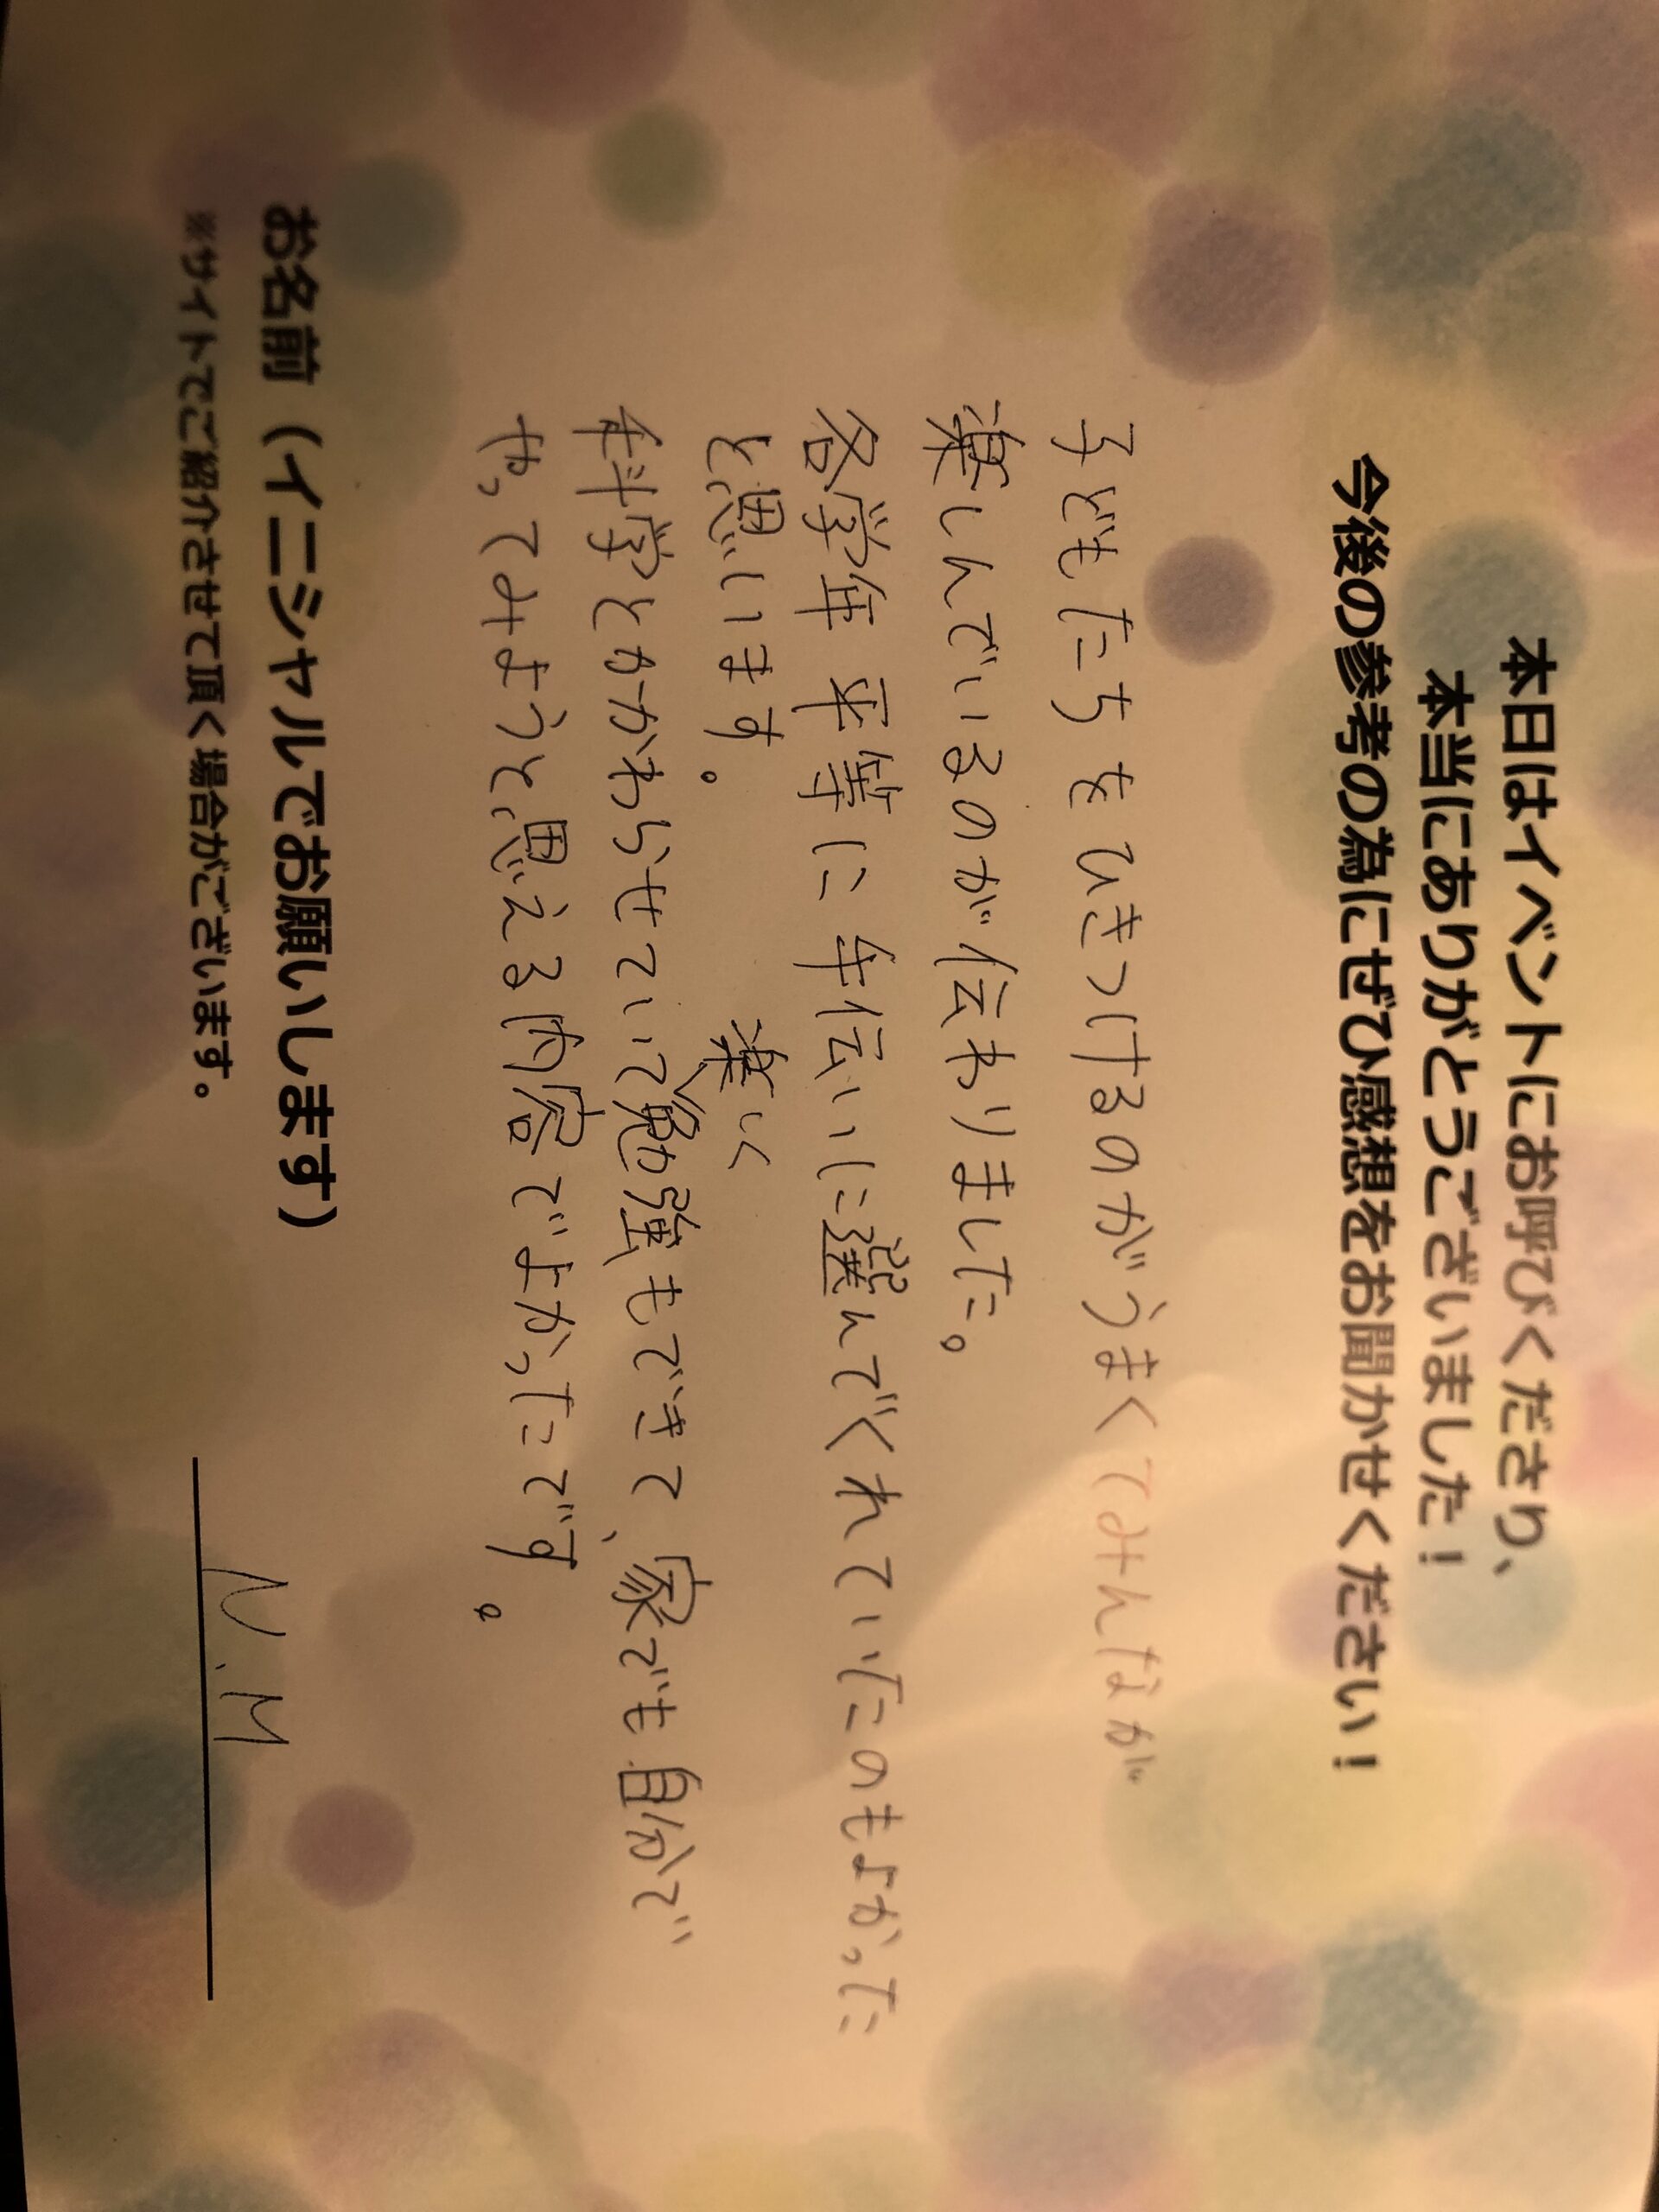 本日はイベントにお呼びくださり、
本当にありがとうございました！
今後の参考の為にぜひ感想をお聞かせください！
子どもたちをひきつけるのがうまくてみんなが
楽しんでいるのが伝わりました。
各学年平等に手伝いに選んでくれていたのもよかった
と思います。
楽しく
科学とかかわらせていて勉強もできて、家でも自分で
やってみようと思える内容でよかったです。
お名前（イニシャルでお願いします）
N.M
※サイトでご紹介させて頂く場合がございます。